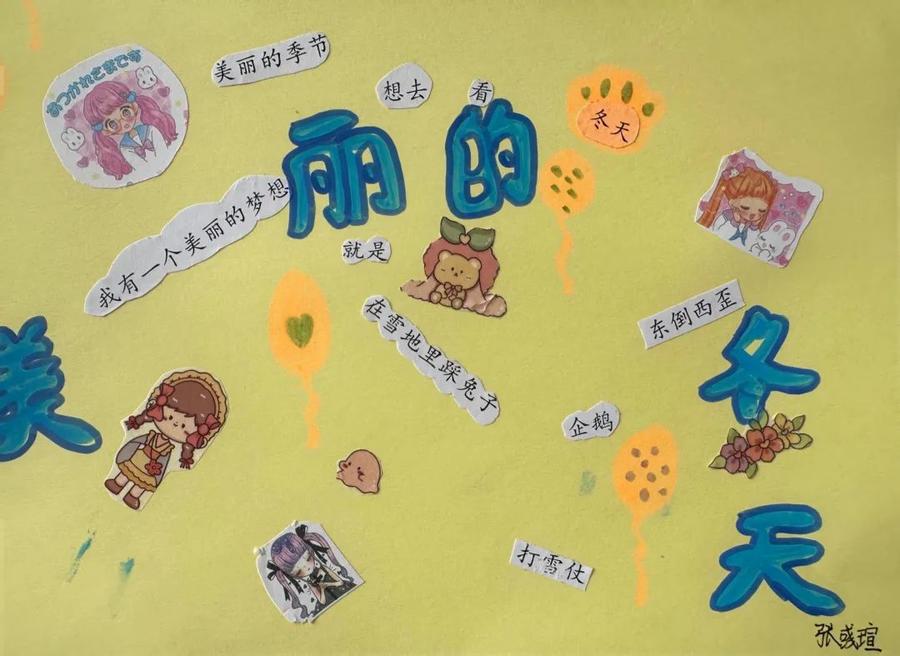 おつかれさまです
美丽的季节
想去
看
冬天
美丽的冬天
我有一个美丽的梦想
就是
在雪地里踩兔子
东倒西歪
企鹅
打雪仗
张彧瑄